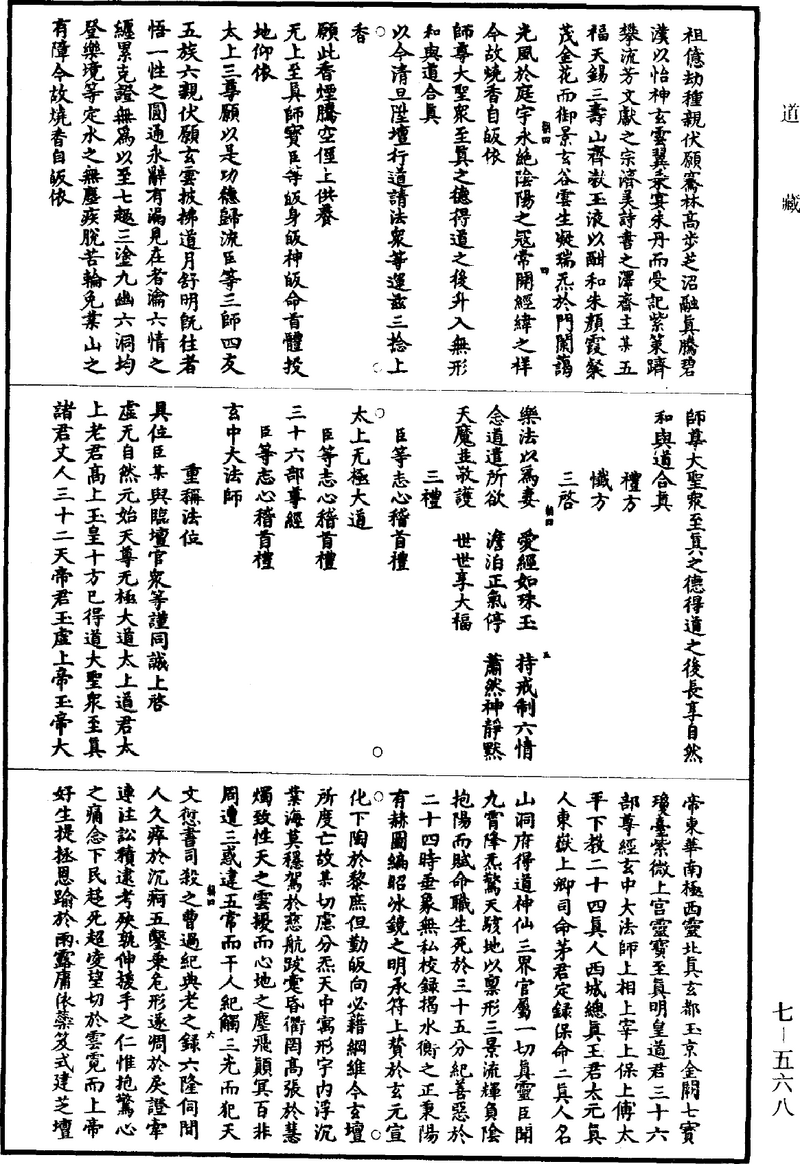 道藏
祖億劫種親伏願騫林高步芝沼融真騰碧
漢以怡神玄雲翼乘宴朱丹而受記紫策躋
攀流芳文獻之宗濟美詩書之澤齋主某五
福天錫三壽山齊漱玉液以酣和朱顏霞粲
茂金花而御景玄谷雲生凝瑞炁於門闌藹
光風於庭宇永絶陰陽之寇常開經緯之祥
今故燒香自皈依
師尊大聖衆至真之德得道之後升入無形
和與道合真
以今清旦陞壇行道請法衆等運茲三捻上
香
願此香煙騰空徑上供養
无上至真師寶臣等皈身皈神皈命首體投
地仰依
太上三尊願以是功德歸流臣等三師四友
五族六親伏願玄雲披拂道月舒明旣往者
悟一性之圓通永辭有漏見在者淪六情之
纏累克證無爲以至七趣三塗九幽六洞均
登樂境等定水之無塵疾脫苦輪免業山之
有障今故燒香自皈依
師尊大聖衆至真之德得道之後長享自然
和與道合真
禮方
懺方
三啓
樂法以爲妻 愛經如珠玉 持戒制六情
念道遣所欲 澹泊正氣停 蕭然神靜默
天魔並敬護 世世享大福
三禮
臣等志心稽首禮
太上无極大道
臣等志心稽首禮
三十六部尊經
臣等志心稽首禮
玄中大法師
重稱法位
具位臣某與臨壇官衆等謹同誠上啓
虛无自然元始天尊无極大道太上道君太
上老君高上玉皇十方已得道大聖衆至真
諸君丈人三十二天帝君玉虛上帝玉帝大
帝東華南極西靈北真玄都玉京金闕七寶
瓊臺紫微上宫靈寶至真明皇道君三十六
部尊經玄中大法師上相上宰上保上傅太
平下教二十四真人西城總真王君太元真
人東嶽上卿司命茅君定録保命二真人名
山洞府得道神仙三界官屬一切真靈臣聞
九霄降炁驚天駭地以禀形三景流輝負陰
抱陽而賦命職生死於三十五分紀善惡於
二十四時垂象無私校録揭水衡之正秉陽
有赫圖編昭冰鏡之明承符上贊於玄元宣
化下陶於黎庶但勤皈向必藉綱維今玄壇
所度亡故某切慮分炁天中寓形宇内浮沉
業海莫穩駕於慈航跋疐昏衢罔高張於慧
燭致性天之雲擾而心地之塵飛顛冥百非
周遭三惑違五常而干人紀觸三光而犯天
文愆書司殺之曹過紀典老之録六隆伺聞
人久瘁於沉痾五鑿乘危形遂凋於戾證牽
連注訟積逮考殃孰伸援手之仁惟抱驚心
之痛念下民趍死超凌望切於雲霓而上帝
好生提拯恩踰於雨露庸依蘂笈式建芝壇
七一五六八